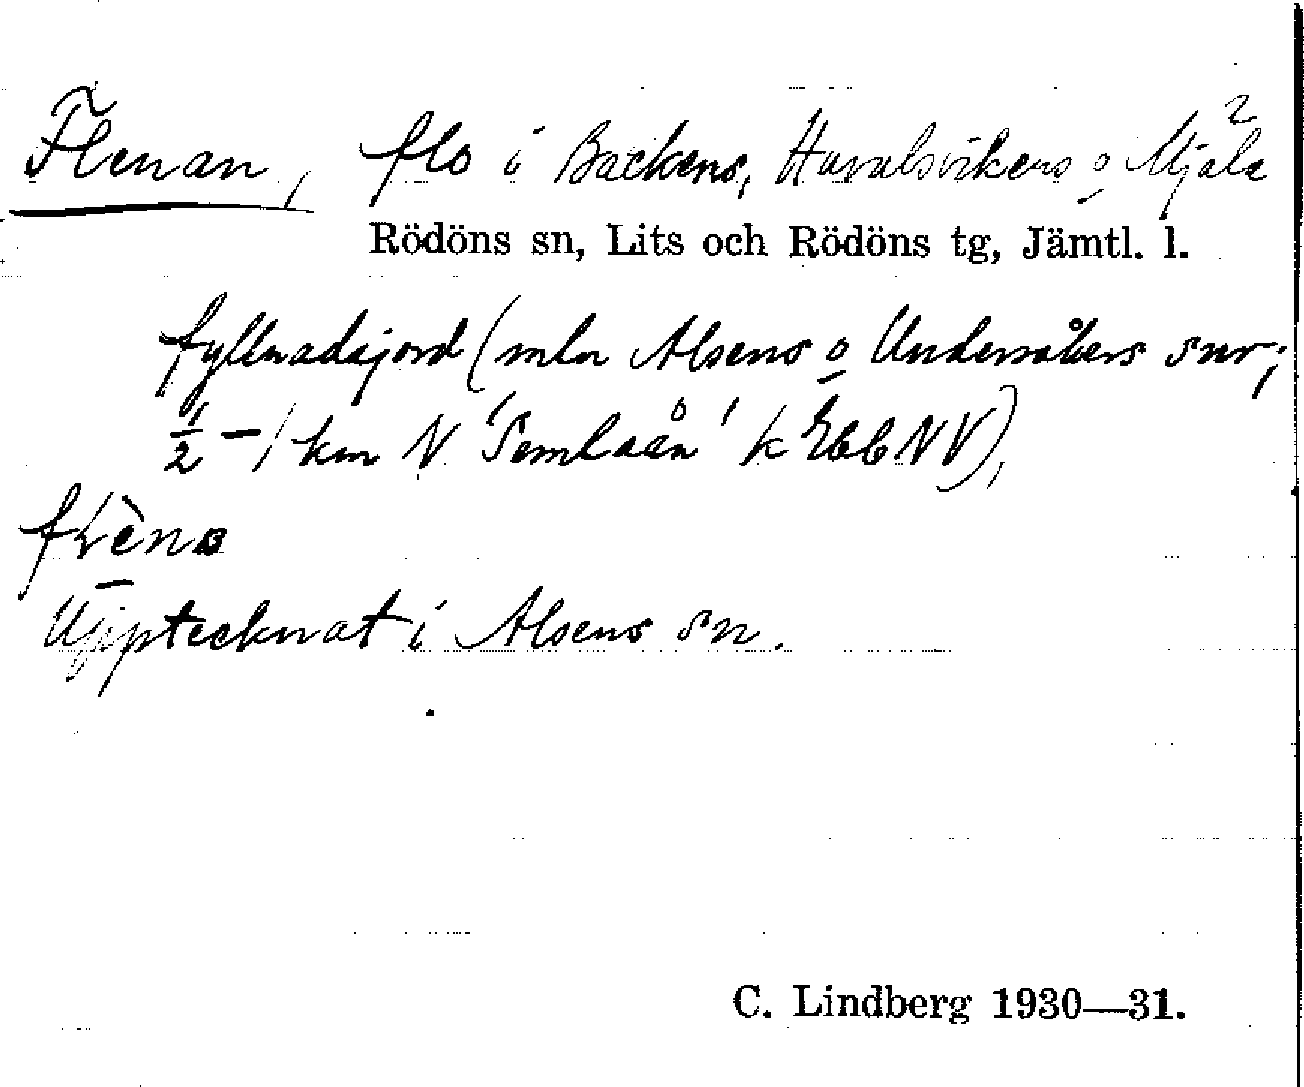 Flenan, flo i Backens, Huvulsvikens o Mjäla
Rödöns sn, Lits och Rödöns tg, Jämtl. l.
fyllnadsjord (mln Alsens o Undersåkers snr;
½ - 1 km N 'Semlaån' k 56b NV),
flèna
Upptecknat i Alsens sn.
C. Lindberg 1930—31.